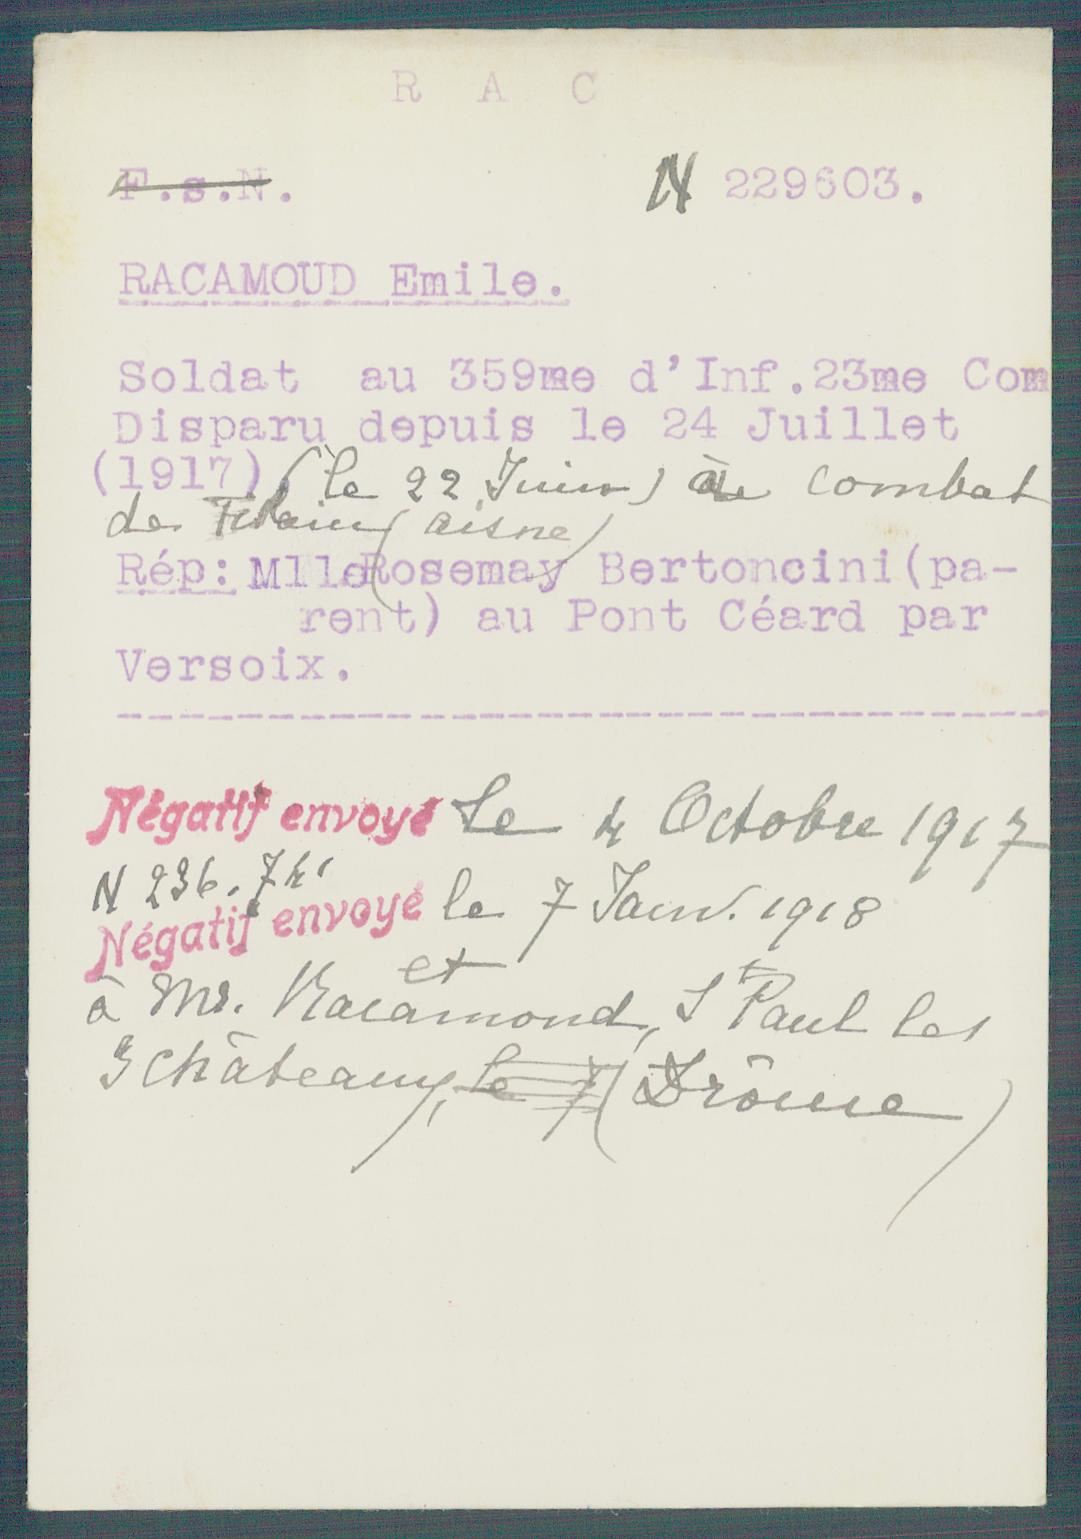 R A C
F.s.N. N 229603.
RACAMOUD Emile.
Soldat au 359me d'Inf.23me Com
Disparu depuis le 24 Juillet
(1917), (le 22 Juin) au combat
de Filain (aisne)
Rép: Mlle Rosemay Bertoncini(pa-
rent) au Pont Céard par
Versoix.
Négatif envoyé Le 4 Octobre 1917
N 236.741
Négatif envoyé le 7 Janv. 1918
et
à Mr. Racamond, St Paul les
3 châteaux, le 7 (Drôme)